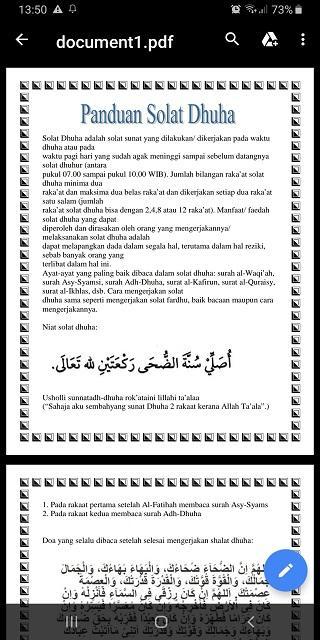 13:50
73%
document1.pdf
Panduan Solat Dhuha
Solat Dhuha adalah solat sunat yang dilakukan/ dikerjakan pada waktu
dhuha atau pada
waktu pagi hari yang sudah agak meninggi sampai sebelum datangnya
solat dhuhur (antara
pukul 07.00 sampai pukul 10.00 WIB). Jumlah bilangan raka'at solat
dhuha minima dua
raka'at dan maksima dua belas raka'at dan dikerjakan setiap dua raka'at
satu salam (jumlah
raka'at solat dhuha bisa dengan 2,4,8 atau 12 raka'at). Manfaat/ faedah
solat dhuha yang dapat
diperoleh dan dirasakan oleh orang yang mengerjakannya/
melaksanakan solat dhuha adalah
dapat melapangkan dada dalam segala hal, terutama dalam hal reziki,
sebab banyak orang yang
terlibat dalam hal ini.
Ayat-ayat yang paling baik dibaca dalam solat dhuha: surah al-Waqi'ah,
surah Asy-Syamsi, surah Adh-Dhuha, surat al-Kafirun, surat al-Quraisy,
surat al-Ikhlas, dsb. Cara mengerjakan solat
dhuha sama seperti mengerjakan solat fardhu, baik bacaan maupun cara
mengerjakannya.
Niat solat dhuha:
أُصَلِّيْ سُنَّةَ الضُّحَى رَكْعَتَيْنِ لله تَعَالَى.
Usholli sunnatadh-dhuha rok'ataini lillahi ta'alaa
("Sahaja aku sembahyang sunat Dhuha 2 rakaat kerana Allah Ta'ala".)
1. Pada rakaat pertama setelah Al-Fatihah membaca surah Asy-Syams
2. Pada rakaat kedua membaca surah Adh-Dhuha
Doa yang selalu dibaca setelah selesai mengerjakan shalat dhuha:
اَللهُمَّ اِنَّ الضُّحَآءَ ضُحَاءُكَ، وَالْبَهَاءَ بَهَاءُكَ، وَالْجَمَالَ
جَمَالُكَ، وَالْقُوَّةَ قُوَّتُكَ، وَالْقُدْرَةَ قُدْرَتُكَ، وَالْعِصْمَةَ
عِصْمَتُكَ. اَللهُمَّ اِنْ كَانَ رِزْقِى فِى السَّمَآءِ فَأَنْزِلْهُ وَإِنْ